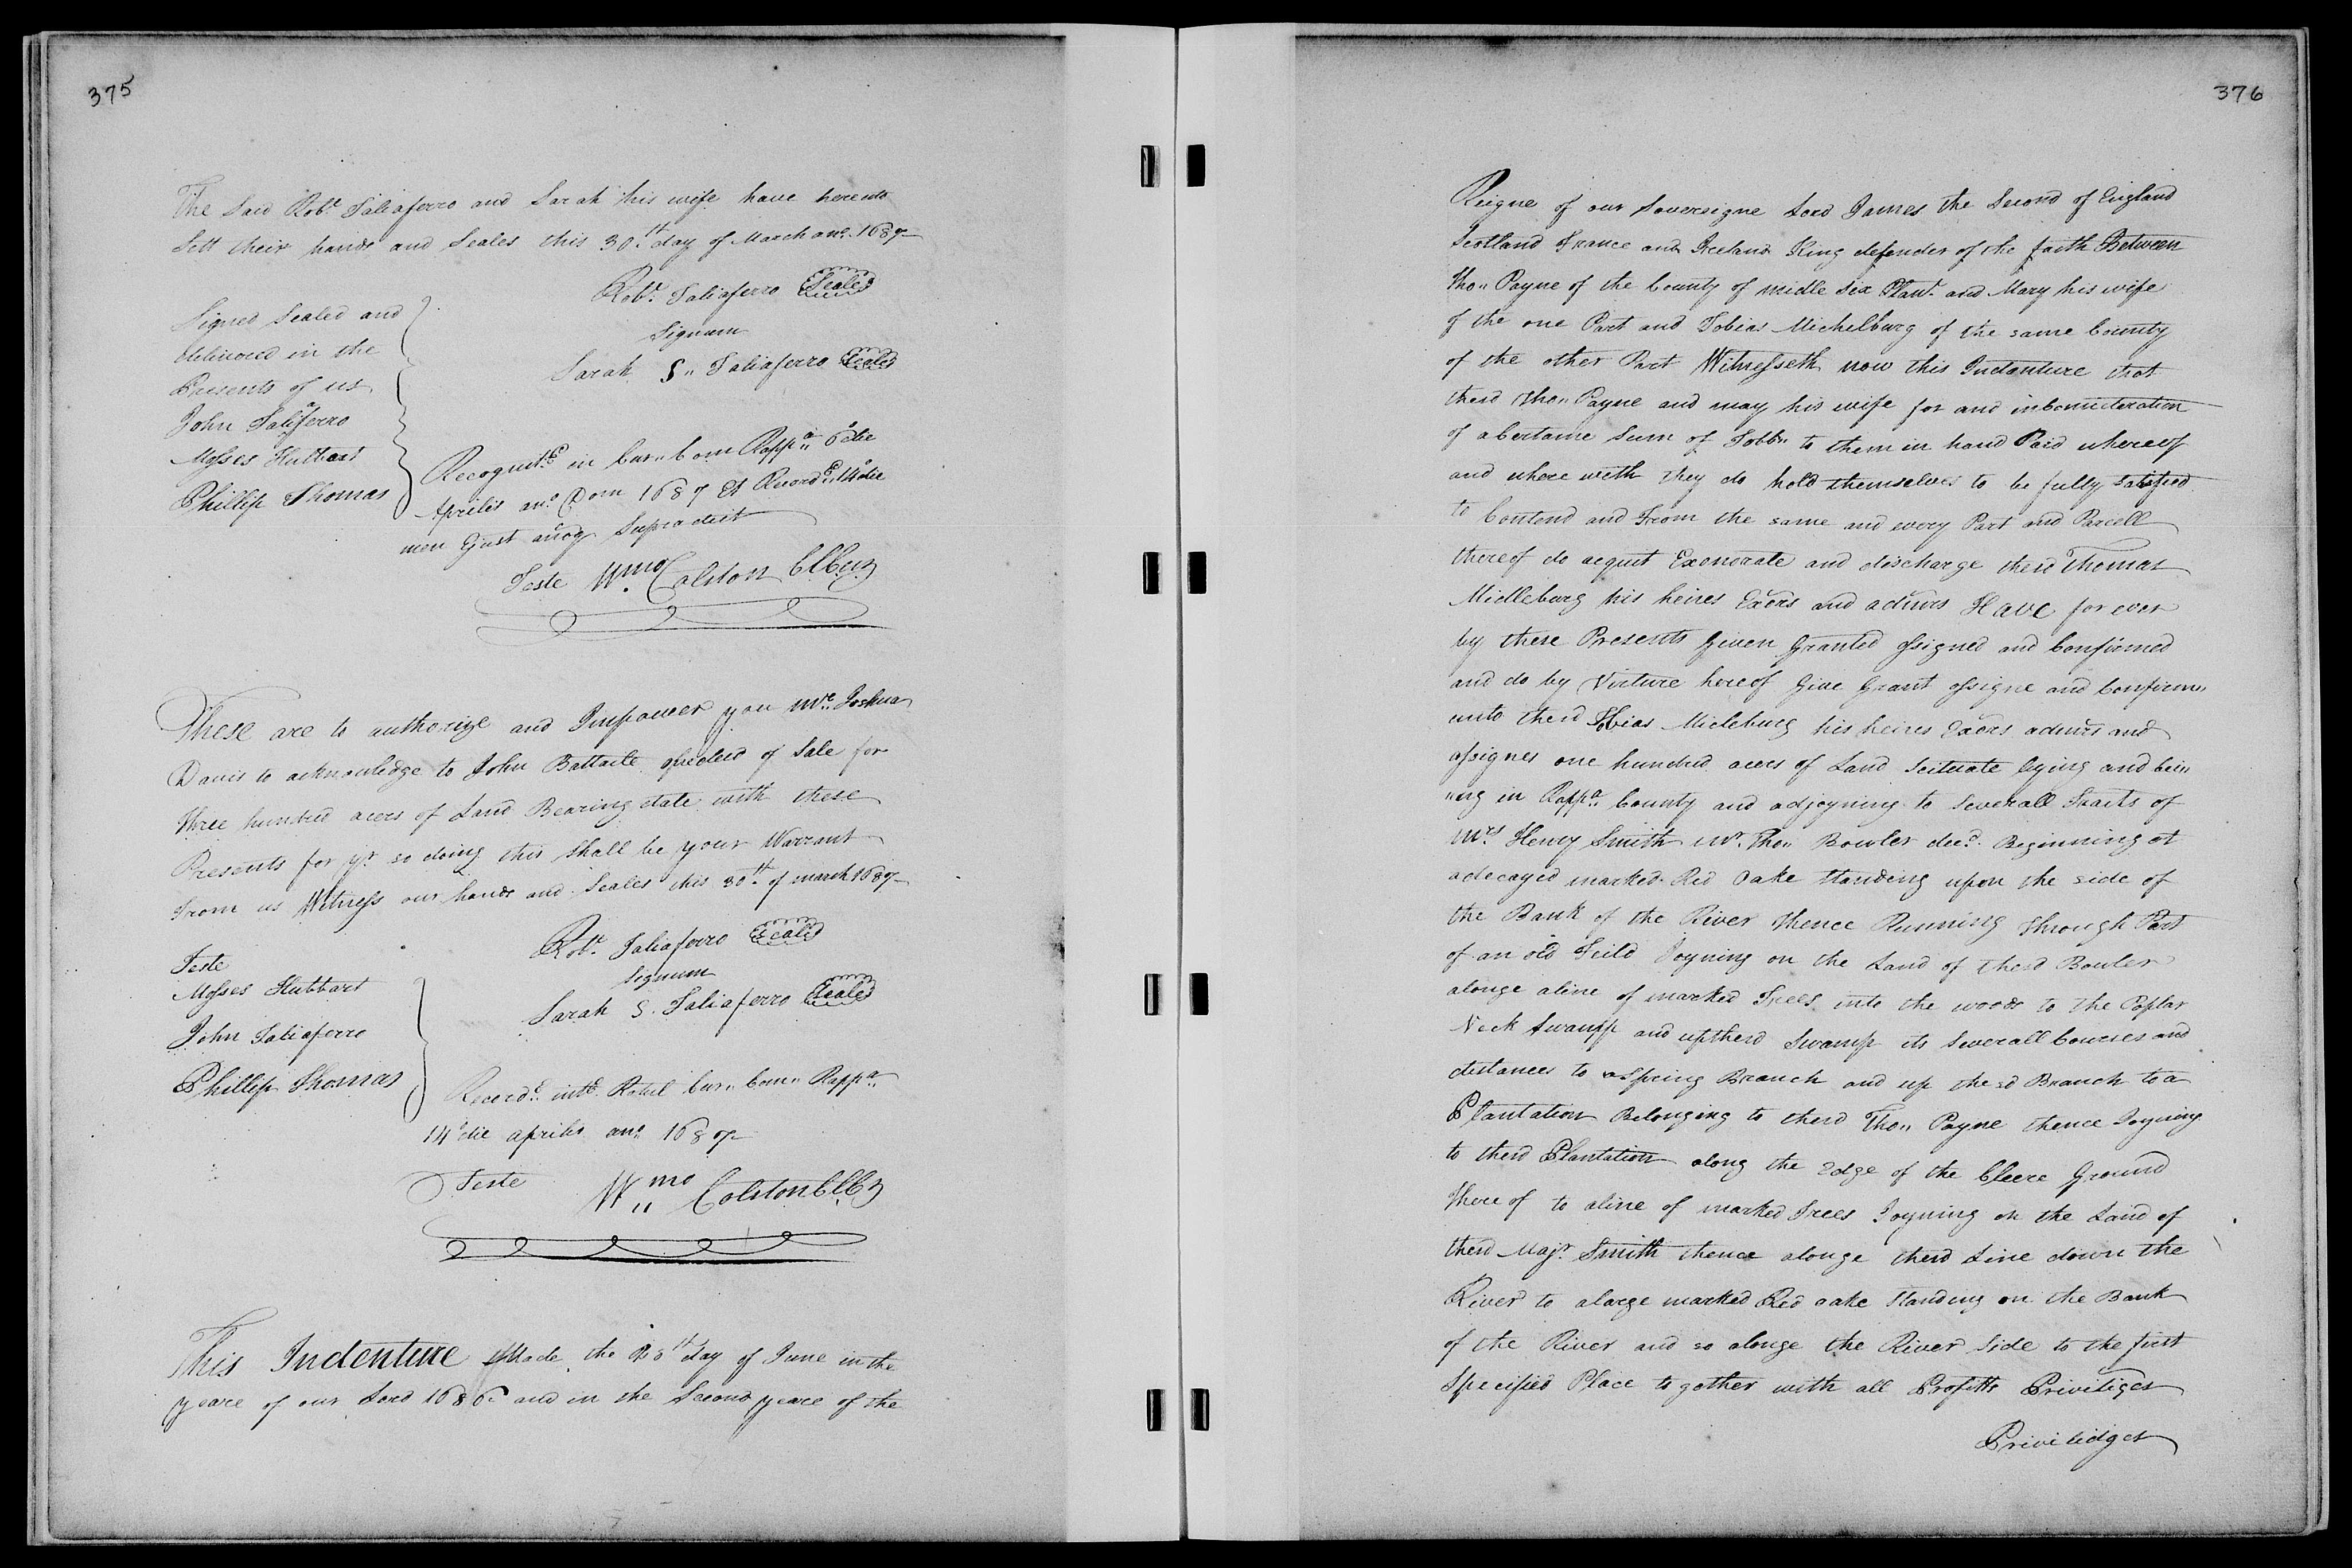 375
The Said Robt. Taliaferro and Sarah his wife have hereunto
Sett their hands and Seales this 30th. day of March ano. 1687
Robt. Taliaferro Seale
Signum
Sarah S,, Taliaferro Seale
Signed Sealed and
delivered in the
Presents of us
John Taliaferro
Mosses Hubbart
Phillip Thomas
Recognit.. in Cur,, Com Rappa,, 6o die
Aprilis ano. Dom 1687 Et Record.. 14o die
men Ejust anoq Supradict
Teste Wmo. Colston ClCur
These are to authorize and Impower you Mr. Joshua
Davis to acknowledge to John Battaile of Sale for
three hundred acers of Land Bearing date with these
Presents for yr. so doing this shall be your Warrant
from us Witness our hands and Seales this 30th. of march 1687
Robt. Taliaferro Seale
Signum
Sarah S. Taliaferro Seale
Teste
Mosses Hubbart
John Taliaferro
Phillip Thomas
Record.. Cur,, Com,, Rappa,,
14o die aprilis ano. 1687
Teste Wmo,, Colston ClCur
This Indenture Made the day of June in the
yeare of our Lord 1686 and in the Second yeare of the
376
Reigne of our Sovereigne Lord James the Second of England
Scotland France and Ireland King defender of the faith Between
Tho,, Payne of the County of midle six Plantr. and Mary his wife
of the one Part and Tobias Michelburg of the same County
of the other Part Witnesseth now this Indenture that
thesd Tho,, Payne and may his wife for and inconsideration
of a certaine Sum of Tobb,, to them in hand Paid whereof
and where with they do hold themselves to be fully satisfied
to Contend and From the same and every Part and Parcell
thereof do acquit Exonorate and discharge thesd Thomas
Midleburg his heires Exors and admrs Have for ever
by these Presents Given Granted assigned and Confirmed
and do by Virture hereof Give Grant assigne and Confirme,,
unto thesd Tobias Micleburg his heires Exors admrs and
assignes one hundred acers of Land Scituate lying and bei,,
,,ng in Rappa,, County and adjoyning to Severall Tracts of
Mrs Henry Smith Mr. Tho,, Bowler decd. Beginning at
a decayed marked Red Oake standing upon the side of
the Bank of the River thence Running through Part
of an old Feild Joyning on the Land of thesd Bowler
alonge aline of marked Trees into the woods to the Poplar
Neck Swamp and upthesd Swamp its Severall Courses and
distances to aSpring Branch and up the sd Branch to a
Plantation Belonging to thesd Tho,, Payne thence Joyning
to thesd Plantation along the Edge of the Cleere Ground
there of to aline of marked Trees Joyning on the Land of
thesd Majr. Smith thence alonge thesd Line down the
River to alarge marked Red oake standing on the Bank
of the River and so alonge the River Side to the first
Specified Place together with all Profitts Priviliges
Priviledges